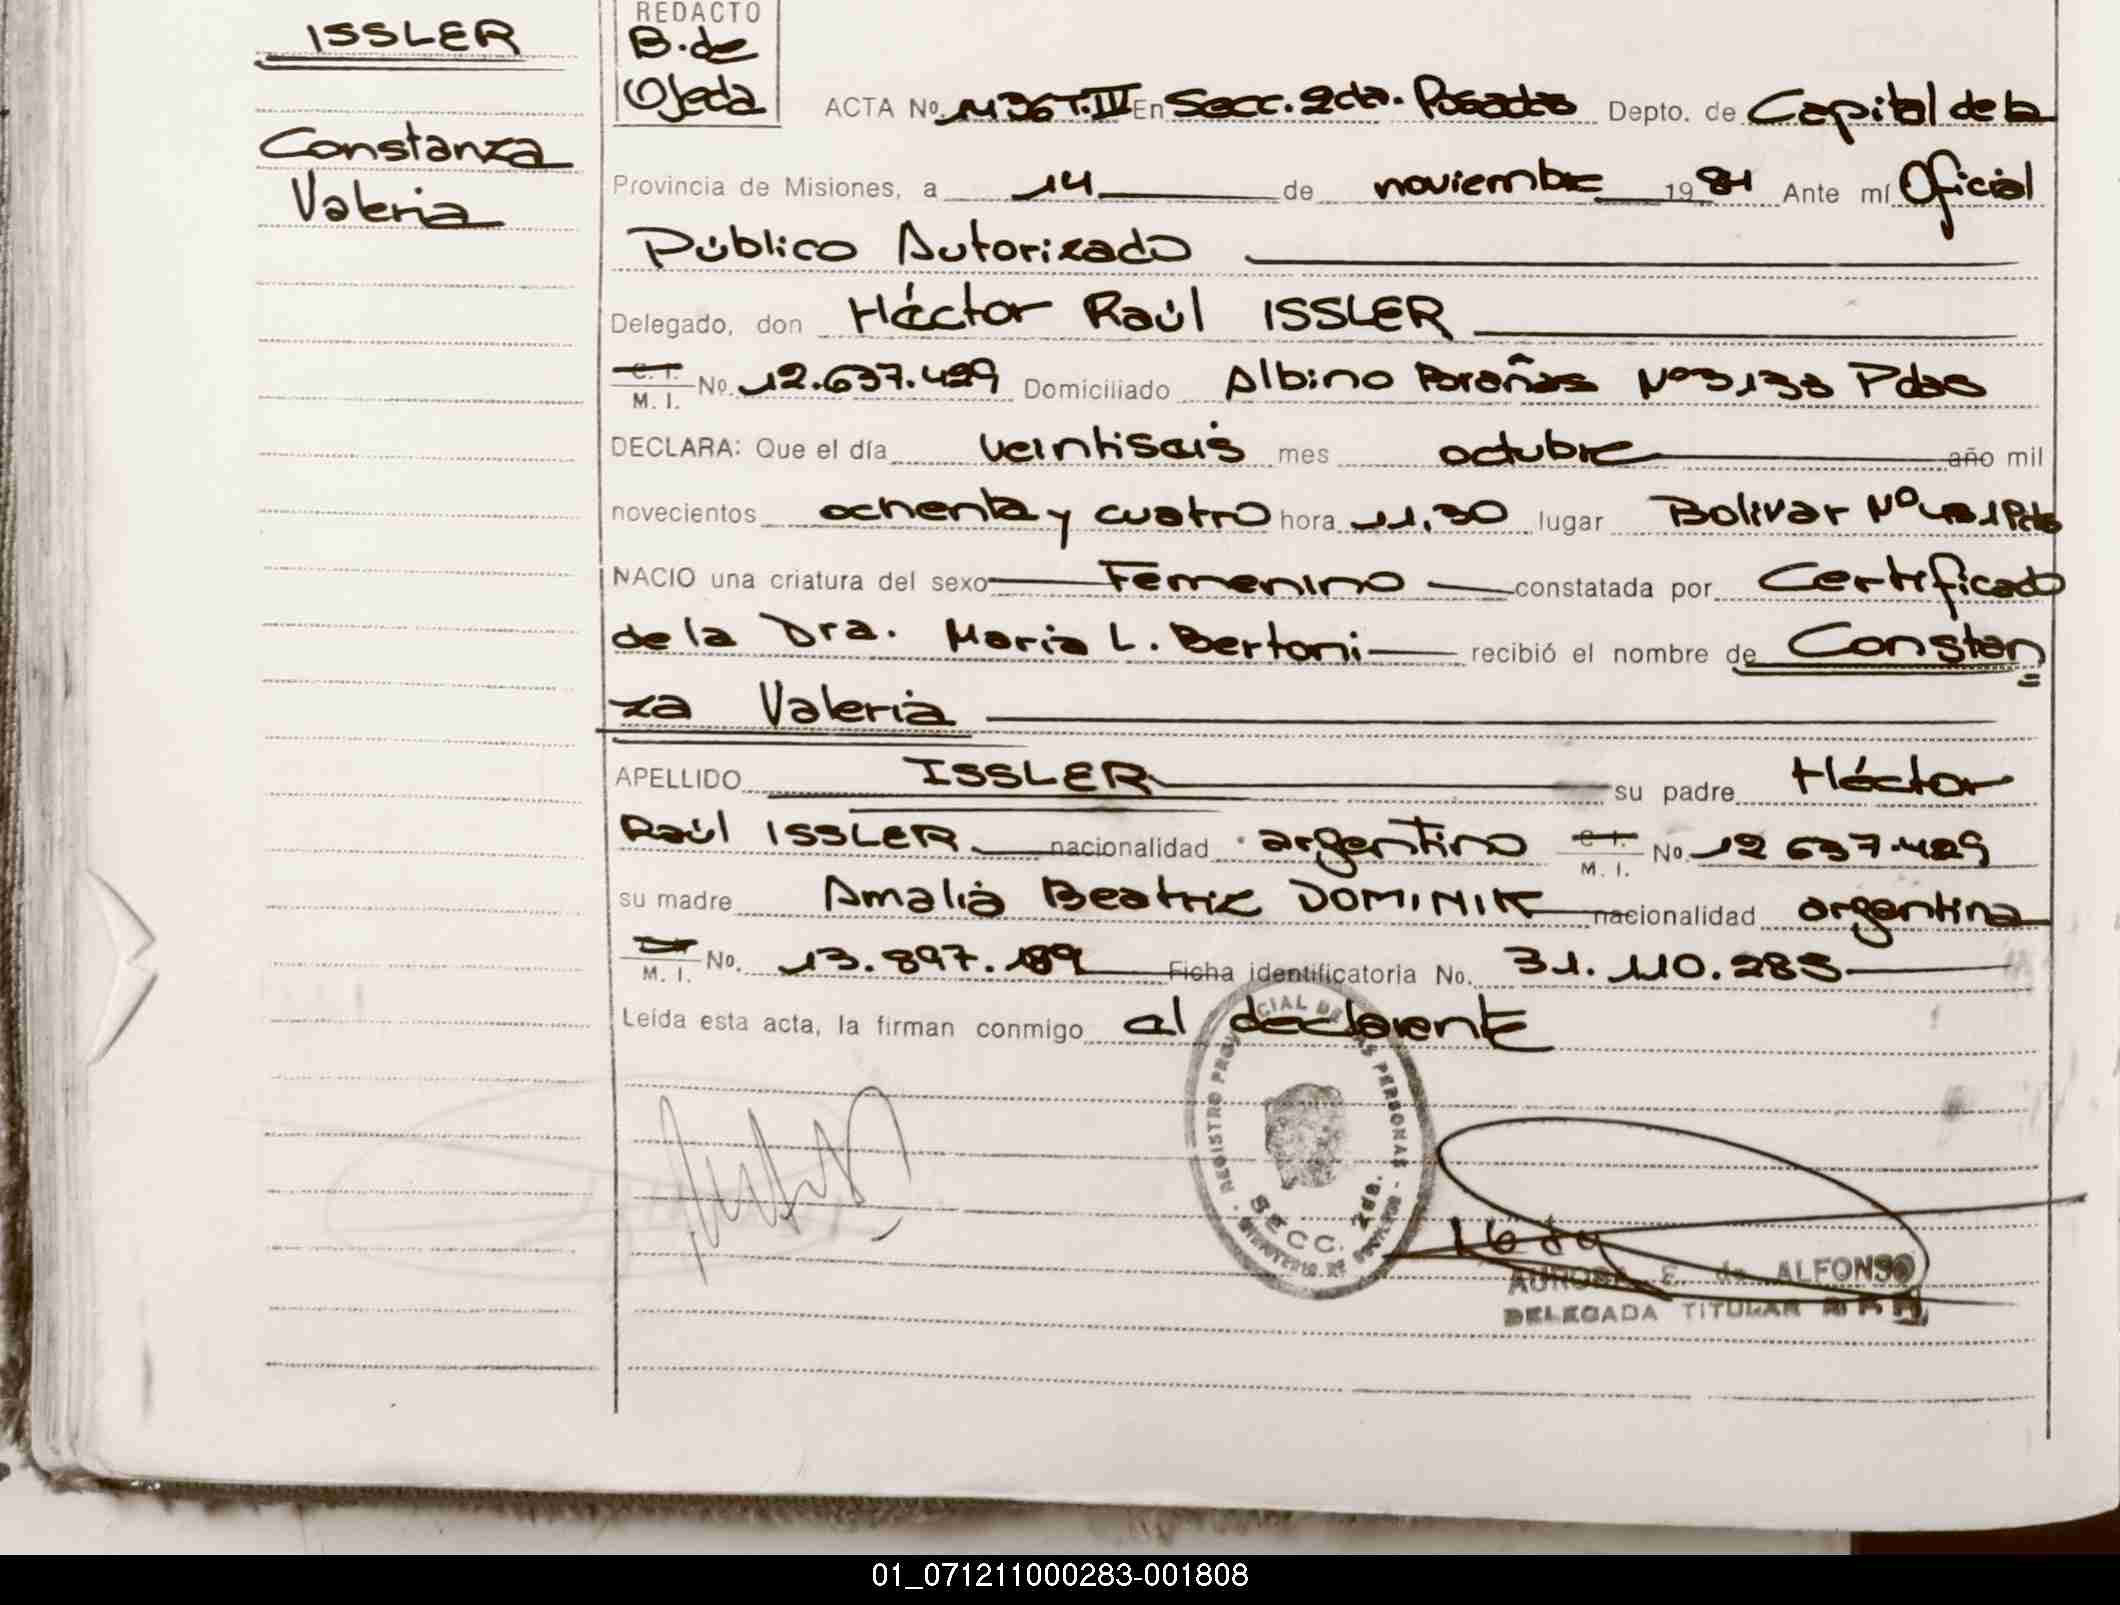 ISSLER
Constanza
Valeria
REDACTO
B. de
Ojeda
ACTA No. 1136 T. III En Secc. 2da. Posadas Depto. de Capital de la
Provincia de Misiones, a 14 de noviembre 1984 Ante mí Oficial
Público Autorizado
Delegado, don Héctor Raúl ISSLER
C. I.
M. I. No. 12.637.429 Domiciliado Albino Nº 3133 Pdas
DECLARA: Que el día veintiseis mes octubre año mil
novecientos ochenta y cuatro hora 11,30 lugar Bolivar Nº
NACIO una criatura del sexo Femenino constatada por Certificado
de la Dra. Maria L. Bertoni recibió el nombre de Constan
za Valeria
APELLIDO ISSLER su padre Héctor
Raúl ISSLER nacionalidad argentino C. I.
M. I. No. 12 637.429
su madre Amalia Beatriz DOMINIK nacionalidad argentina
M. I. No. 13.897.189 Ficha identificatoria No. 31.110.285
Leída esta acta, la firman conmigo el declarente
REGISTRO PROVINCIAL DE LAS PERSONAS
SECC. 2da.
AURORA E. de ALFONSO
DELEGADA TITULAR
01_071211000283-001808